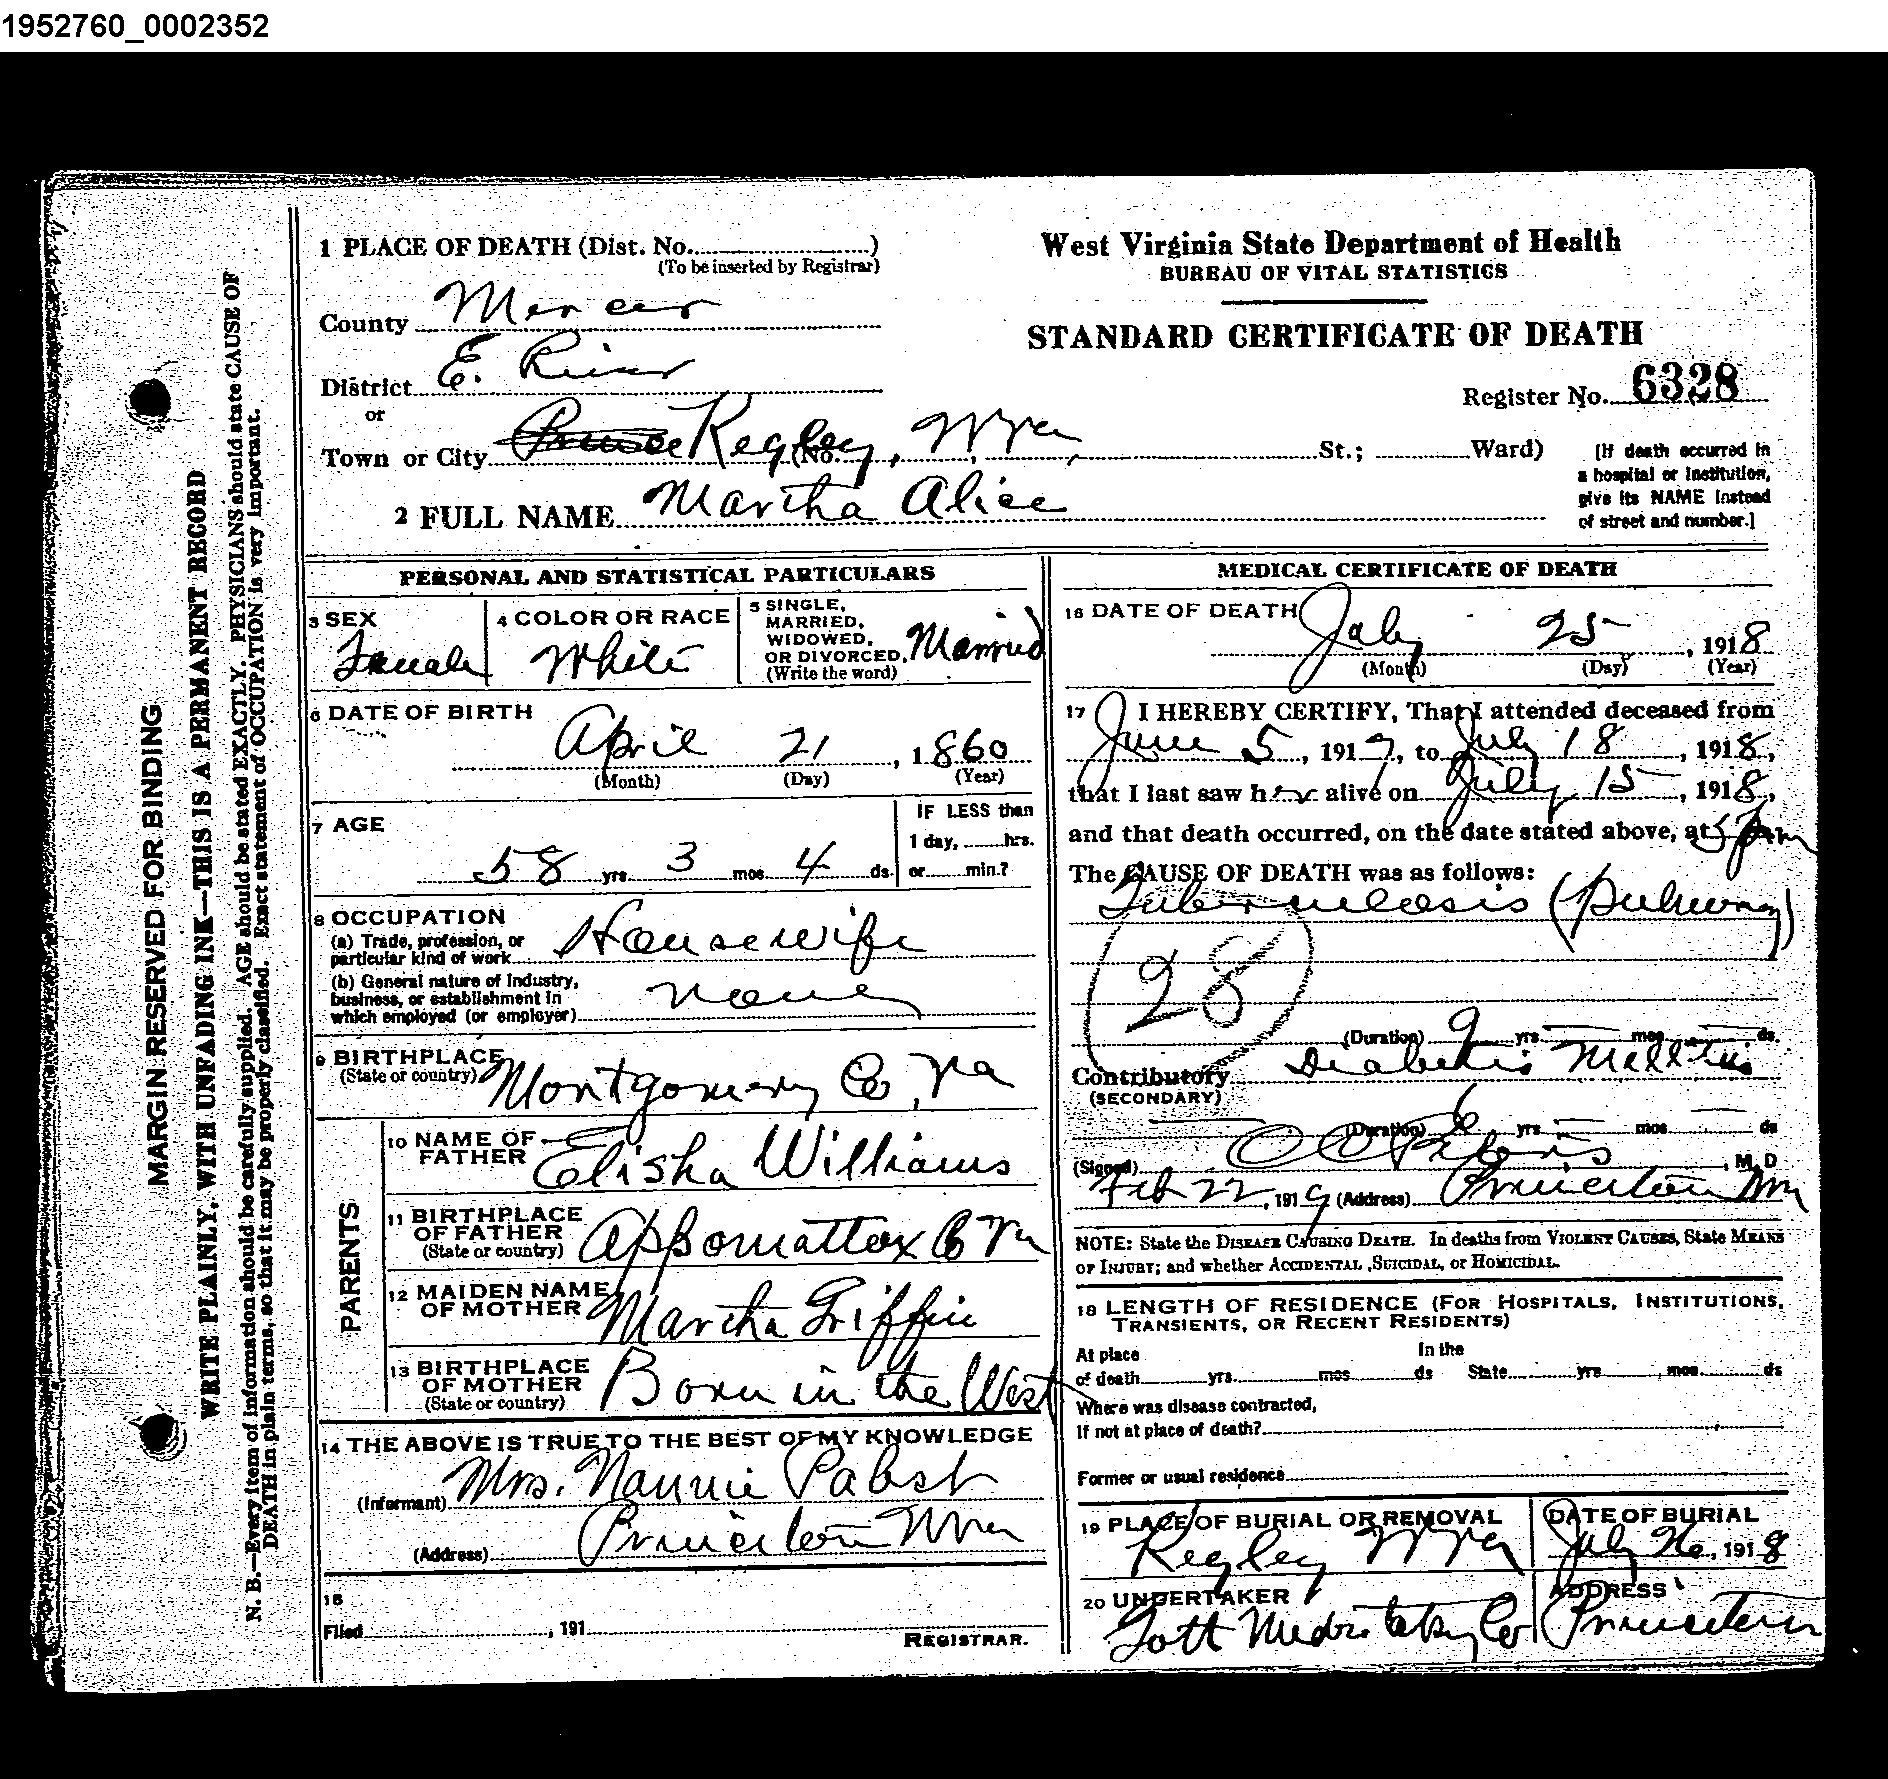 1952760_0002352
1 PLACE OF DEATH (Dist. No. )
(To be inserted by Registrar)
County Mercer
District E. River
or
Town or City Kegley, W Va, (No. St.; Ward)
2 FULL NAME Martha Alice
West Virginia State Department of Health
BUREAU OF VITAL STATISTICS
STANDARD CERTIFICATE OF DEATH
Register No. 6328
[If death occurred in
a hospital or institution,
give its NAME instead
of street and number.]
PERSONAL AND STATISTICAL PARTICULARS
3 SEX
Female
4 COLOR OR RACE
White
5 SINGLE,
MARRIED,
WIDOWED,
OR DIVORCED,
(Write the word)
Married
6 DATE OF BIRTH
April 21, 1860
(Month) (Day) (Year)
7 AGE
58 yrs. 3 mos. 4 ds.
IF LESS than
1 day, hrs.
or min.?
8 OCCUPATION
(a) Trade, profession, or
particular kind of work Housewife
(b) General nature of industry,
business, or establishment in
which employed (or employer) none
9 BIRTHPLACE
(State or country) Montgomery Co, Va
PARENTS
10 NAME OF
FATHER Elisha Williams
11 BIRTHPLACE
OF FATHER
(State or country) Appomattox Co Va
12 MAIDEN NAME
OF MOTHER Martha Griffin
13 BIRTHPLACE
OF MOTHER
(State or country) Born in the West
14 THE ABOVE IS TRUE TO THE BEST OF MY KNOWLEDGE
(Informant) Mrs. Nannie Pabst
(Address) Princeton W Va
15
Filed , 191
REGISTRAR.
MEDICAL CERTIFICATE OF DEATH
16 DATE OF DEATH
July 25, 1918
(Month) (Day) (Year)
17 I HEREBY CERTIFY, That I attended deceased from
June 5, 1917, to July 18, 1918,
that I last saw her alive on July 15, 1918,
and that death occurred, on the date stated above, at 5 m
The CAUSE OF DEATH was as follows:
Tuberculosis (pulmonary)
(28)
(Duration) 9 yrs. mos. ds.
Contributory Diabetis Mellitus
(SECONDARY)
(Duration) 6 yrs. mos. ds
(Signed) , M. D
Feb 22, 1919 (Address) Princeton W Va
NOTE: State the DISEASE CAUSING DEATH. In deaths from VIOLENT CAUSES, State MEANS
OF INJURY; and whether ACCIDENTAL, SUICIDAL, or HOMICIDAL.
18 LENGTH OF RESIDENCE (FOR HOSPITALS, INSTITUTIONS,
TRANSIENTS, OR RECENT RESIDENTS)
At place In the
of death yrs. mos ds State yrs , mos. ds
Where was disease contracted,
If not at place of death?
Former or usual residence
19 PLACE OF BURIAL OR REMOVAL
Kegley W Va
DATE OF BURIAL
July 26, 1918
20 UNDERTAKER
Co
ADDRESS
Princeton
MARGIN RESERVED FOR BINDING
WRITE PLAINLY, WITH UNFADING INK—THIS IS A PERMANENT RECORD
N. B.—Every item of information should be carefully supplied. AGE should be stated EXACTLY. PHYSICIANS should state CAUSE OF
DEATH in plain terms, so that it may be properly classified. Exact statement of OCCUPATION is very important.